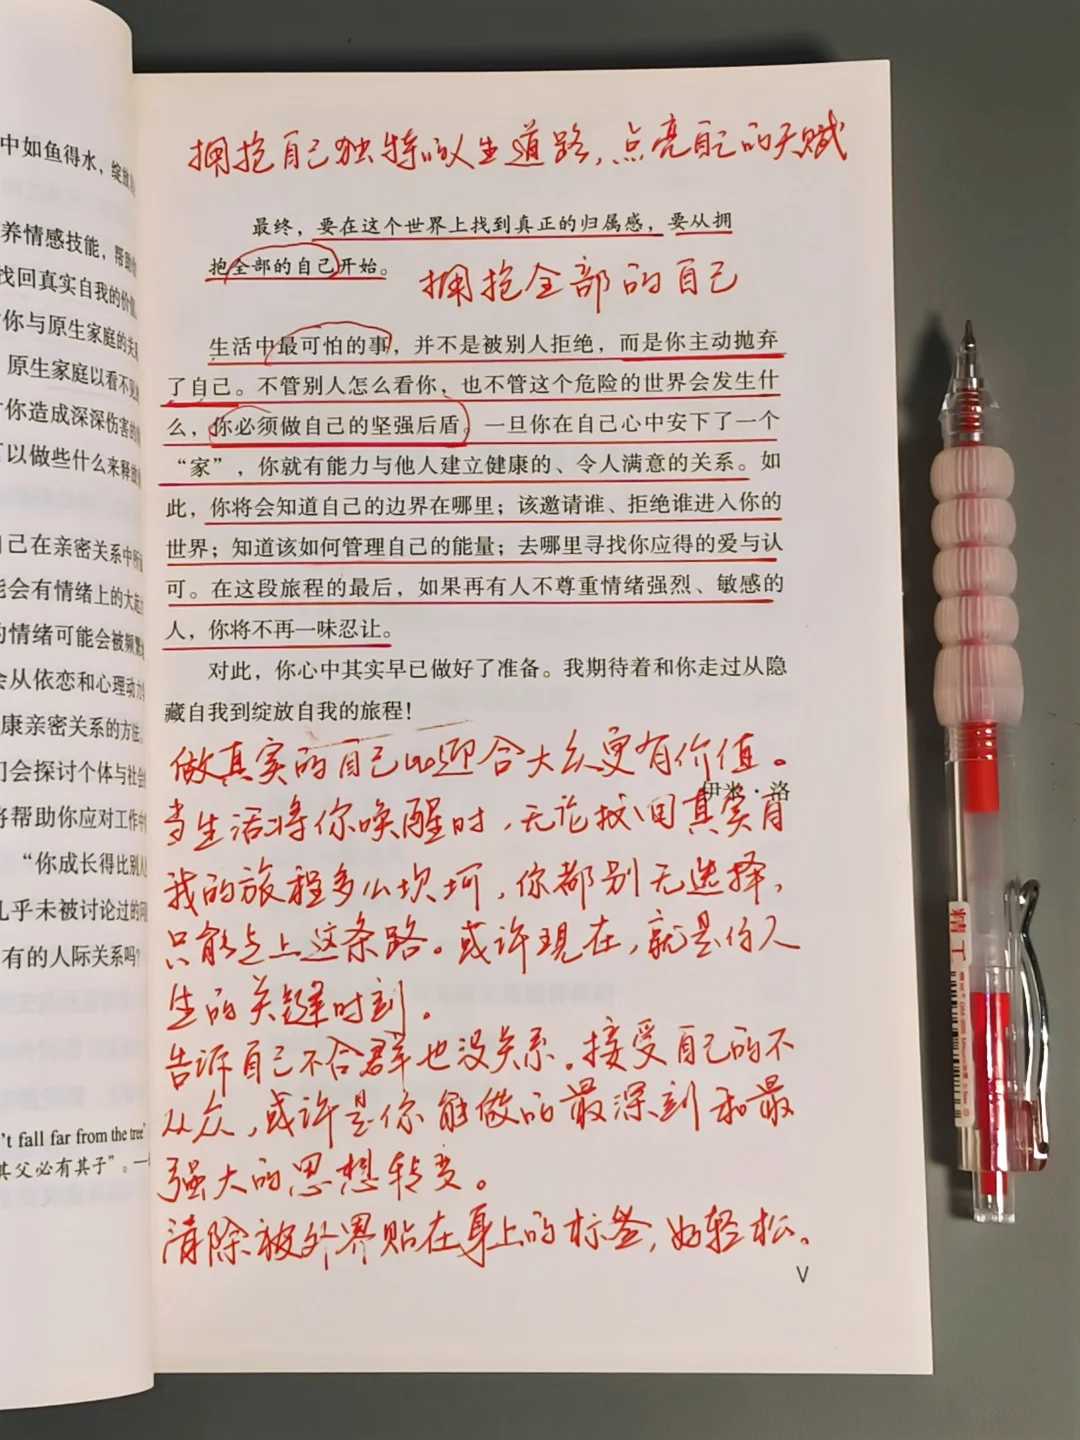 中如鱼得水，绽放
养情感技能，帮助
找回真实自我的价值
你与原生家庭的关
原生家庭以看不见
你造成深深伤害的
可以做些什么来释放
自己在亲密关系中所
能会有情绪上的大起
的情绪可能会被频繁
会从依恋和心理动力
康亲密关系的方法。
们会探讨个体与社会
将帮助你应对工作中
“你成长得比别人
几乎未被讨论过的问
有的人际关系吗？
't fall far from the tree”
其父必有其子”。—
拥抱自己独特的人生道路，点亮自己的天赋
最终，要在这个世界上找到真正的归属感，要从拥
抱全部的自己开始。
拥抱全部的自己
生活中最可怕的事，并不是被别人拒绝，而是你主动抛弃
了自己。不管别人怎么看你，也不管这个危险的世界会发生什
么，你必须做自己的坚强后盾。一旦你在自己心中安下了一个
“家”，你就有能力与他人建立健康的、令人满意的关系。如
此，你将会知道自己的边界在哪里；该邀请谁、拒绝谁进入你的
世界；知道该如何管理自己的能量；去哪里寻找你应得的爱与认
可。在这段旅程的最后，如果再有人不尊重情绪强烈、敏感的
人，你将不再一味忍让。
对此，你心中其实早已做好了准备。我期待着和你走过从隐
藏自我到绽放自我的旅程！
做真实的自己比迎合大众更有价值。
伊米·洛
当生活将你唤醒时，无论找回真实自
我的旅程多么坎坷，你都别无选择，
只能走上这条路。或许现在，就是你人
生的关键时刻。
告诉自己不合群也没关系。接受自己的不
从众，或许是你能做的最深刻和最
强大的思想转变。
清除被外界贴在身上的标签，好轻松。
V
精工